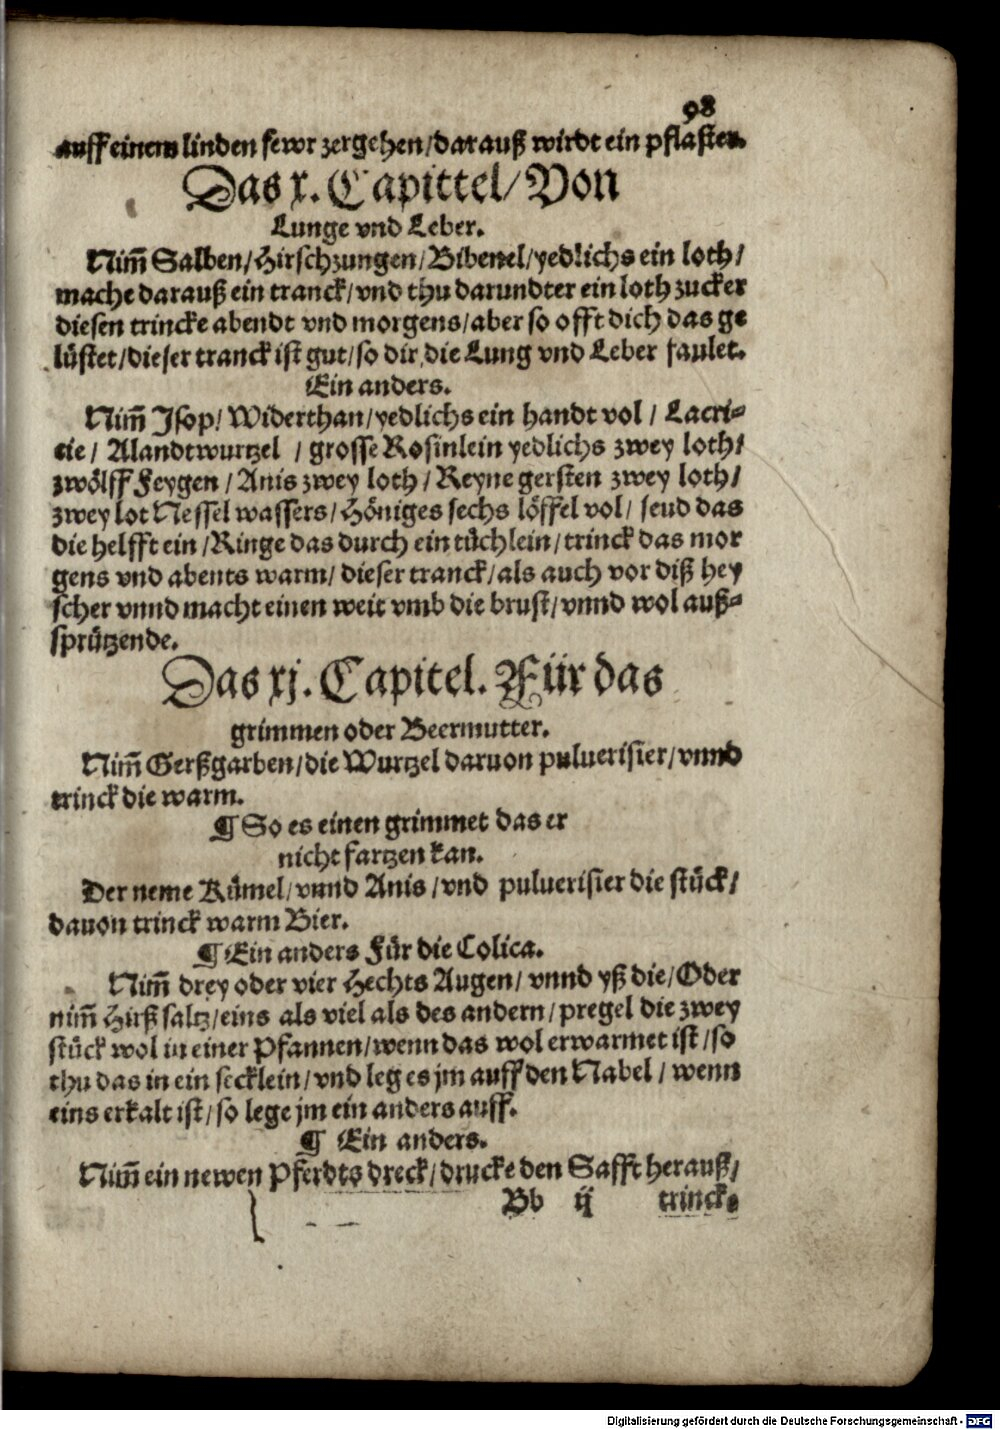 98
auff einem linden fewr zergehen/darauß wirdt ein pflaster.
Das x. Capittel/Von
Lunge vnd Leber.
Nim̃ Salben/Hirschzungen/Bibenel/yedlichs ein loth/
mache darauß ein tranck/vnd thu darundter ein loth zucker
diesen trincke abendt vnd morgens/aber so offt dich das ge
lüstet/dieser tranck ist gut/so dir die Lung vnd Leber faulet.
Ein anders.
Nim̃ Jsop/Widerthan/yedlichs ein handt vol/Lacri-
tie/Alandtwurtzel/grosse Rosinlein yedlichs zwey loth/
zwölff Feygen/Anis zwey loth/Reyne gersten zwey loth/
zwey lot Nessel wassers/Höniges sechs löffel vol/seud das
die helfft ein/Ringe das durch ein tüchlein/trinck das mor
gens vnd abents warm/dieser tranck/als auch vor diß hey
scher vnnd macht einen weit vmb die brust/vnnd wol auß-
sprützende.
Das xj. Capitel. Für das
grimmen oder Beermutter.
Nim̃ Gerßgarben/die Wurtzel daruon puluerisier/vnnd
trinck die warm.
¶ So es einen grimmet das er
nicht fartzen kan.
Der neme Kümel/vnnd Anis/vnd puluerisier die stück/
dauon trinck warm Bier.
¶ Ein anders Für die Colica.
Nim̃ drey oder vier Hechts Augen/vnnd yß die/Oder
nim̃ Hirß saltz/eins als viel als des andern/pregel die zwey
stück wol in einer Pfannen/wenn das wol erwarmet ist/so
thu das in ein secklein/vnd leg es jm auff den Nabel/wenn
eins erkalt ist/so lege jm ein anders auff.
¶ Ein anders.
Nim̃ ein newen Pferdts dreck/drucke den Safft herauß/
Bb ij trincke
Digitalisierung gefördert durch die Deutsche Forschungsgemeinschaft - DFG